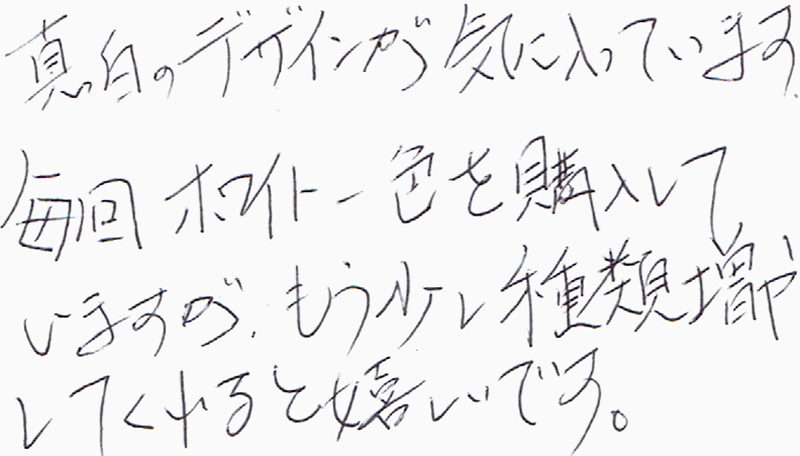 真白のデザインが気に入っています.
毎回ホワイト一色を購入して
いますが、もう少し種類増や
してくれると嬉しいです。